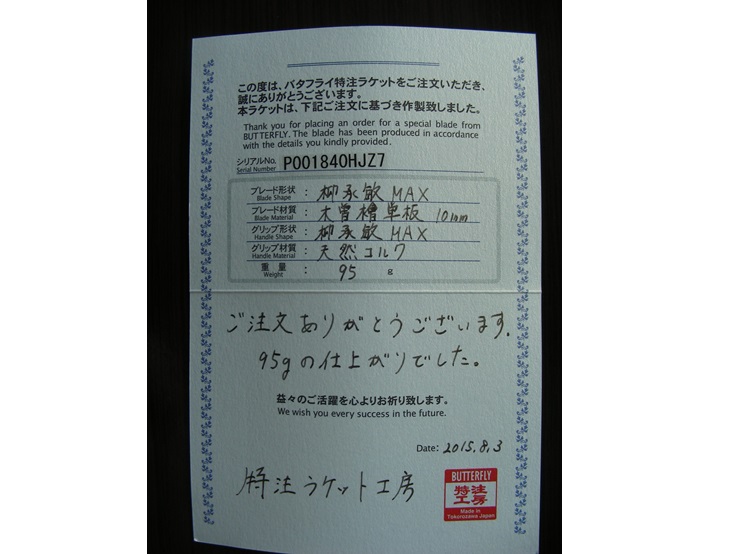 この度は、バタフライ特注ラケットをご注文いただき、
誠にありがとうございます。
本ラケットは、下記ご注文に基づき作製致しました。
Thank you for placing an order for a special blade from
BUTTERFLY. The blade has been produced in accordance
with the details you kindly provided.
シリアルNo. P001840HJZ7
Serial Number
ブレード形状 : 柳承敏 MAX
Blade Shape
ブレード材質 : 木曽檜単板 10mm
Blade Material
グリップ形状 : 柳承敏 MAX
Handle Shape
グリップ材質 : 天然コルク
Handle Material
重量 : 95 g
Weight
ご注文ありがとうございます.
95gの仕上がりでした。
益々のご活躍を心よりお祈り致します。
We wish you every success in the future.
Date: 2015.8.3
特注ラケット工房
BUTTERFLY
特注
工房
Made in
Tokorozawa Japan